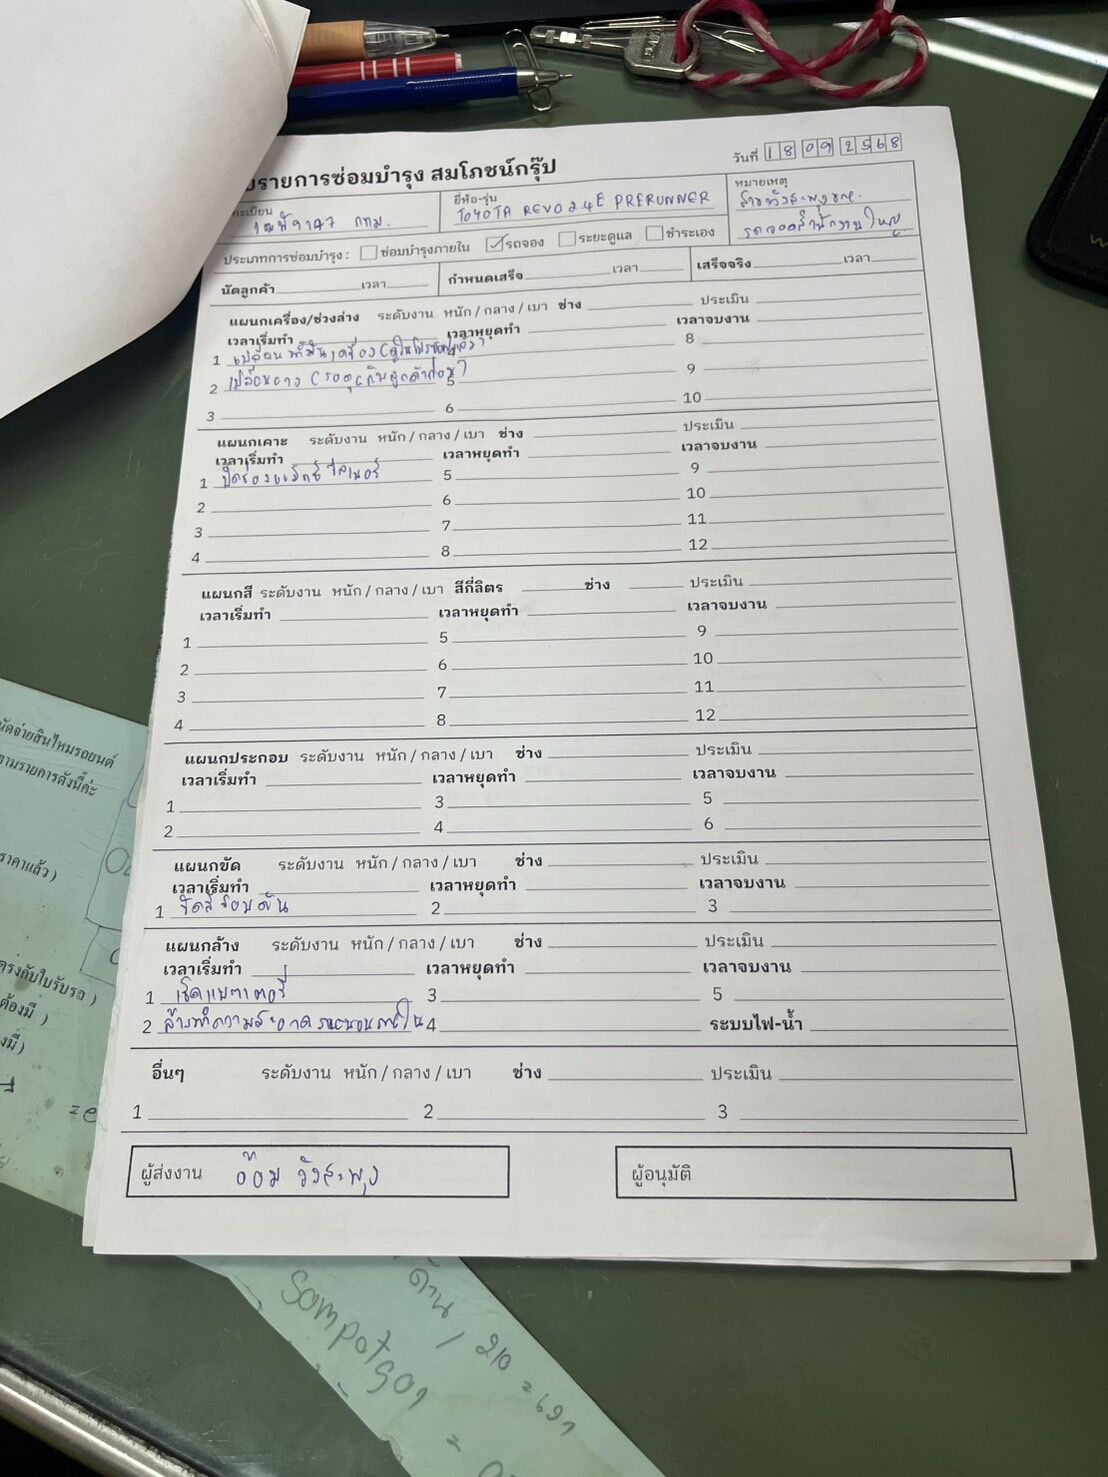 บรายการซ่อมบำรุง สมโภชน์กรุ๊ป
วันที่ 18 09 2568
ทะเบียน
ยี่ห้อ-รุ่น
TOYOTA REVO 2.4E PRERUNNER
หมายเหตุ
สาขาวังสะพุง
รถจอดสำนักงานใหญ่
กทม.
ประเภทการซ่อมบำรุง : ซ่อมบำรุงภายใน รถจอง ระยะดูแล ชำระเอง
นัดลูกค้า เวลา กำหนดเสร็จ เวลา เสร็จจริง เวลา
แผนกเครื่อง/ช่วงล่าง ระดับงาน หนัก / กลาง / เบา ช่าง ประเมิน
เวลาเริ่มทำ เวลาหยุดทำ เวลาจบงาน
1 เปลี่ยน 4 8
2 เปลี่ยนยาง 5 9
3 6 10
แผนกเคาะ ระดับงาน หนัก / กลาง / เบา ช่าง ประเมิน
เวลาเริ่มทำ เวลาหยุดทำ เวลาจบงาน
1 5 9
2 6 10
3 7 11
4 8 12
แผนกสี ระดับงาน หนัก / กลาง / เบา สีกี่ลิตร ช่าง ประเมิน
เวลาเริ่มทำ เวลาหยุดทำ เวลาจบงาน
1 5 9
2 6 10
3 7 11
4 8 12
แผนกประกอบ ระดับงาน หนัก / กลาง / เบา ช่าง ประเมิน
เวลาเริ่มทำ เวลาหยุดทำ เวลาจบงาน
1 3 5
2 4 6
แผนกขัด ระดับงาน หนัก / กลาง / เบา ช่าง ประเมิน
เวลาเริ่มทำ เวลาหยุดทำ เวลาจบงาน
1 ขัดสีรอบคัน 2 3
แผนกล้าง ระดับงาน หนัก / กลาง / เบา ช่าง ประเมิน
เวลาเริ่มทำ เวลาหยุดทำ เวลาจบงาน
1 เช็คแบตเตอรี่ 3 5
2 ล้างทำความสะอาด 4 ระบบไฟ-น้ำ
อื่นๆ ระดับงาน หนัก / กลาง / เบา ช่าง ประเมิน
1 2 3
ผู้ส่งงาน อ๊อม วังสะพุง
ผู้อนุมัติ
นัดจ่ายสินไหมรถยนต์
ตามรายการดังนี้ค่ะ
ราคาแล้ว )
ตรงกับใบรับรถ )
ต้องมี )
งมี )
ด้าน / 210 =
Sompotson